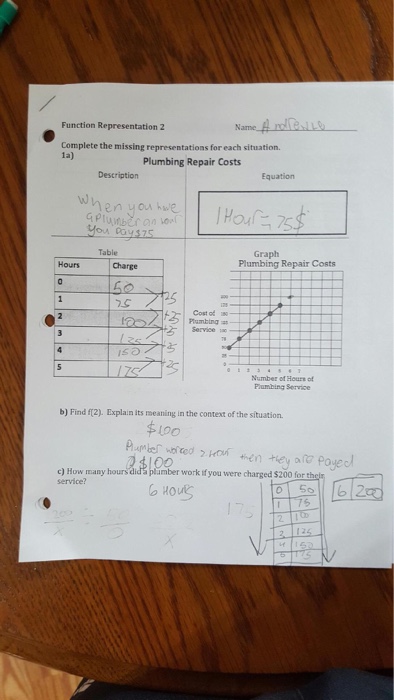 Function Representation 2
Name
Complete the missing representations for each situation.
1a)
Plumbing Repair Costs
Description
Equation
When you
a Plumber
you pay $75
1 Hour = 75$
Table
Hours
Charge
0
50
1
75
2
100
3
125
4
150
5
175
+25
+25
+25
+25
Graph
Plumbing Repair Costs
Cost of
Plumbing
Service
0 1 2 3 4 5 6 7
Number of Hours of
Plumbing Service
b) Find f(2). Explain its meaning in the context of the situation.
$100
Plumber worced 2 Hour then they are Payed
$100
c) How many hours did a plumber work if you were charged $200 for their
service?
6 Hours
175
0 50
1 75
2 100
3 125
4 150
5 175
6 200